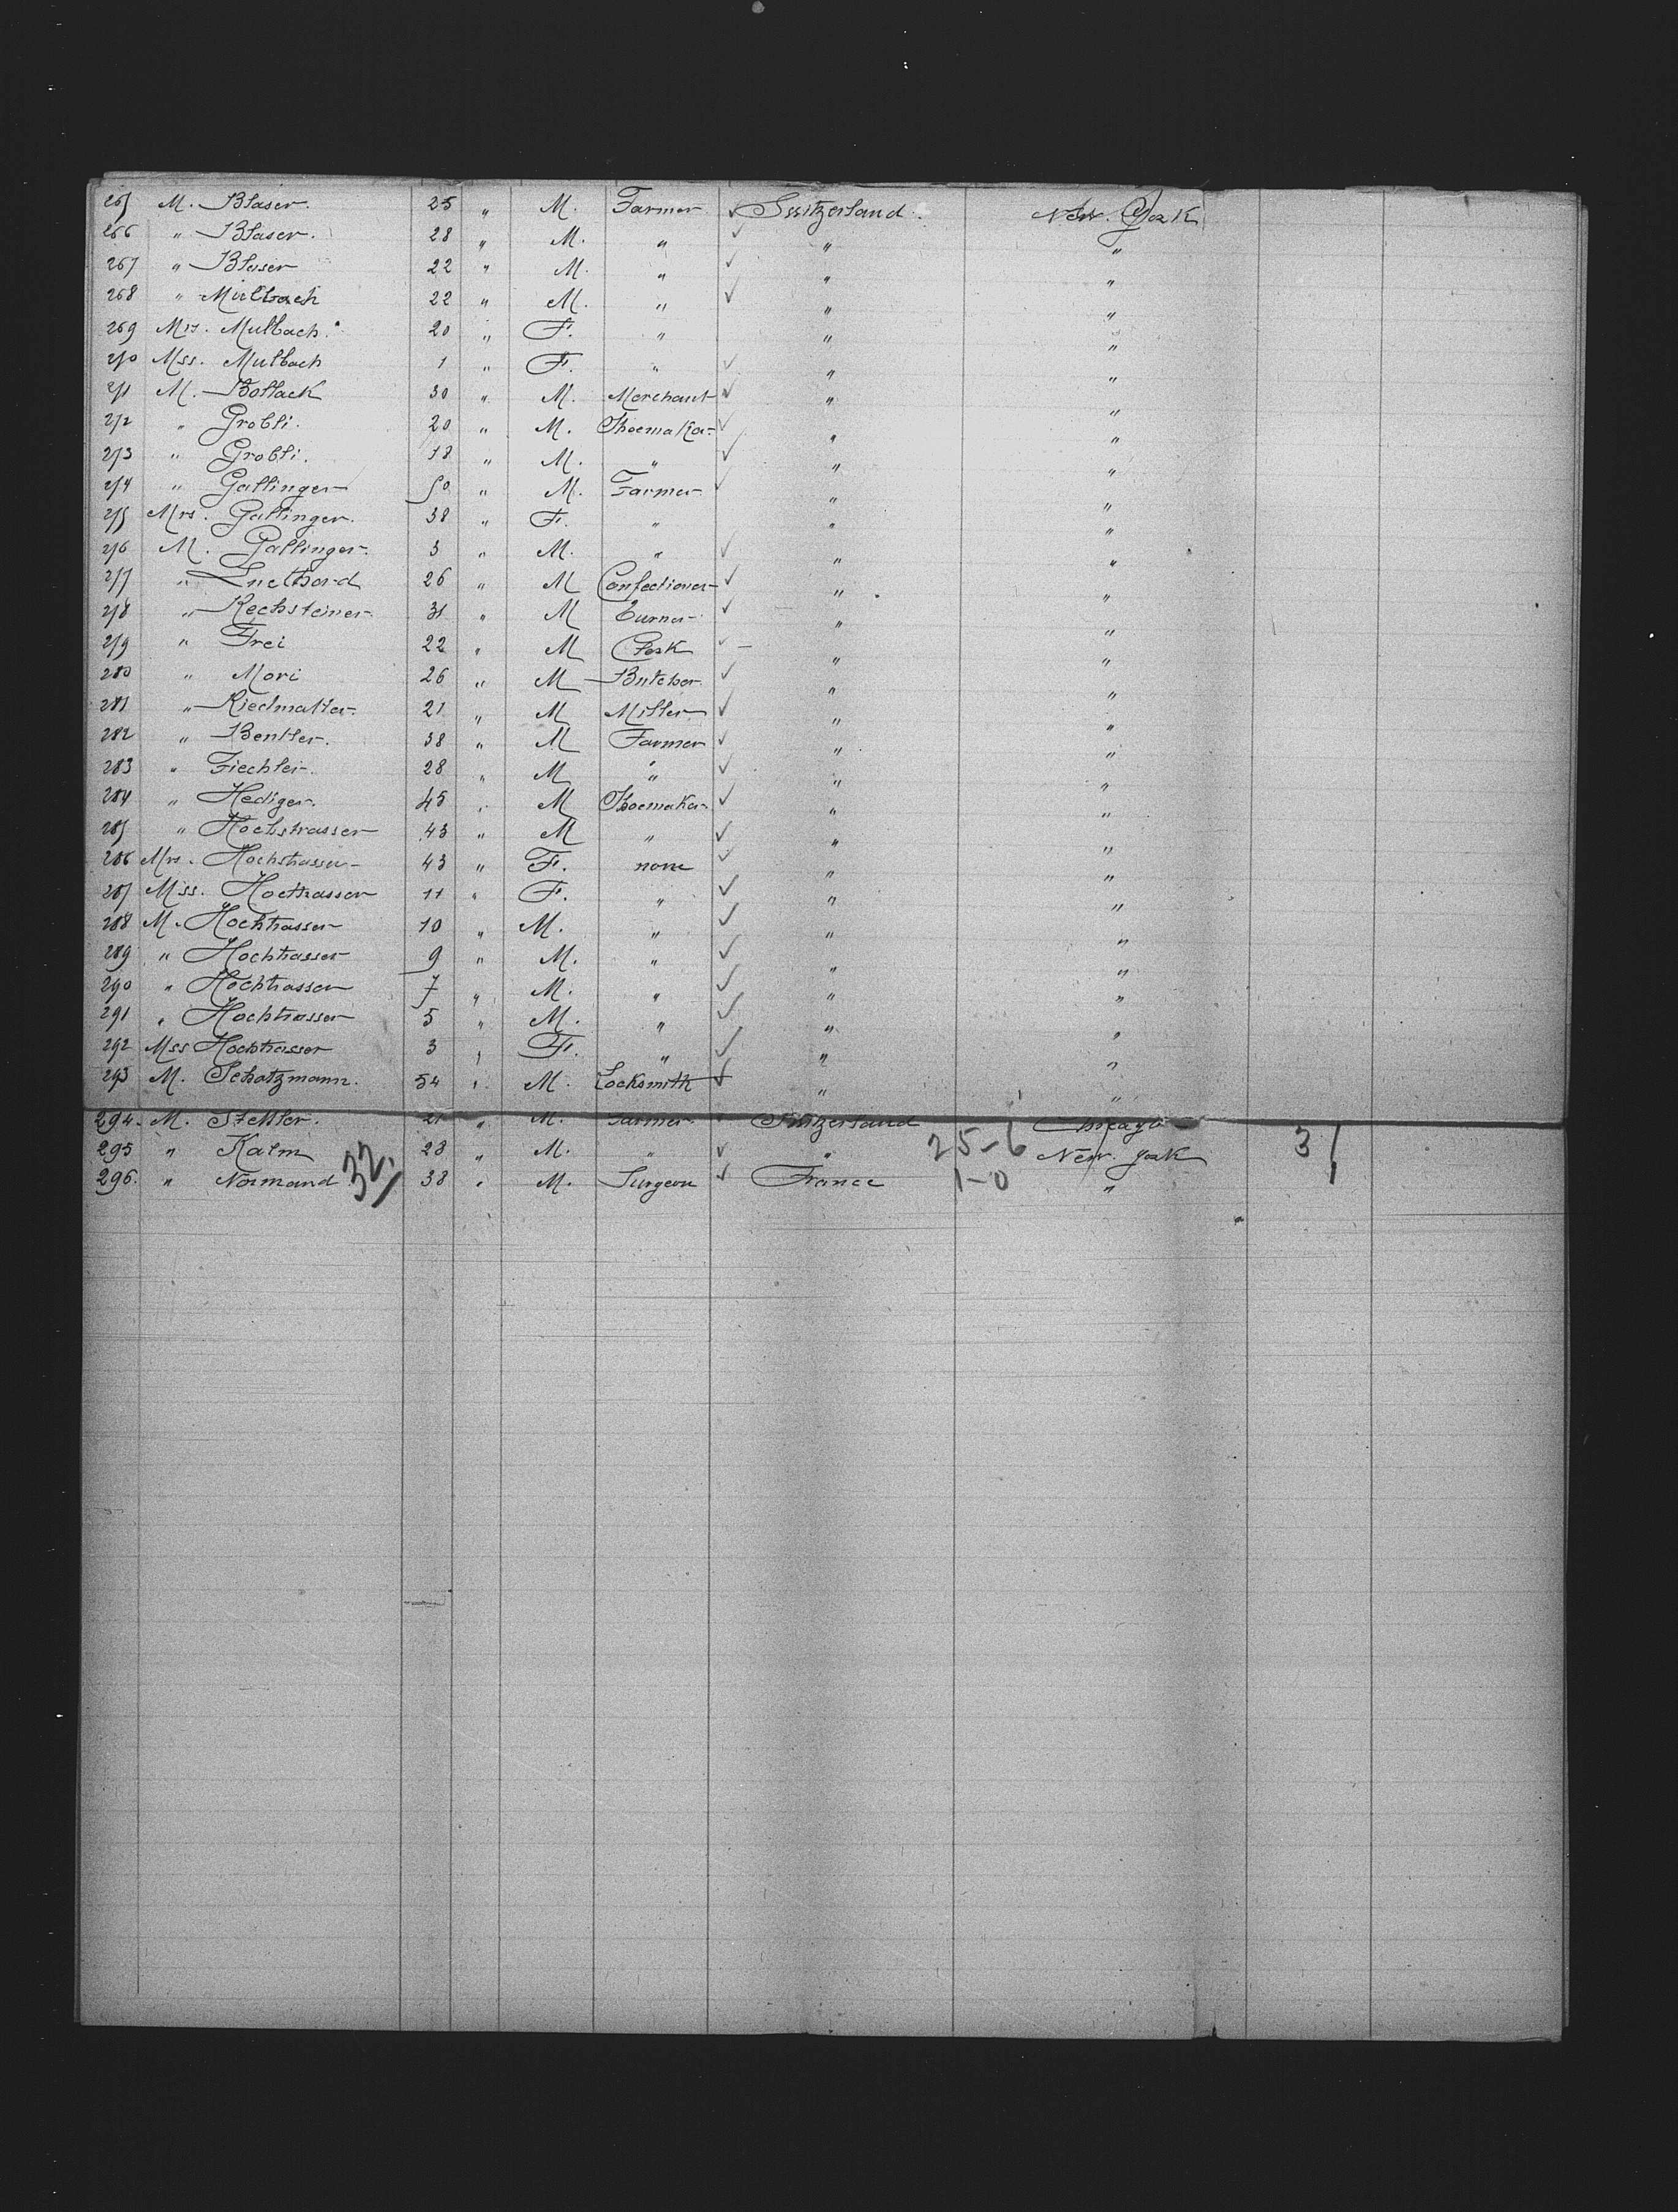 265 M. Blaser. 25 " M. Farmer ✓ Switzerland. New. York
266 " Blaser. 28 " M. " ✓ " "
267 " Blaser 22 " M. " ✓ " "
268 " Mulbach 22 " M. " ✓ " "
269 Mrs. Mulbach. 20 " F. " " "
270 Mss. Mulbach 1 " F. " ✓ " "
271 M. Bollack 30 " M. Merchant ✓ " "
272 " Grobli. 20 " M. Shoemaker ✓ " "
273 " Grobli. 18 " M. " ✓ " "
274 " Gallinger 50 " M. Farmer ✓ " "
275 Mrs. Gallinger. 38 " F. " " "
276 M. Gallinger. 3 " M. " ✓ " "
277 " 26 " M Confectioner ✓ " "
278 " Rechsteiner 31 " M Turner ✓ " "
279 " Frei 22 " M Clerk ✓ " "
280 " Mori 26 " M Butcher. ✓ " "
281 " Riedmatter. 21 " M Miller ✓ " "
282 " Bentler. 38 " M Farmer ✓ " "
283 " Fiechter. 28 " M " ✓ " "
284 " Hediger. 45 " M Shoemaker ✓ " "
285 " Hochstrasser 43 " M " ✓ " "
286 Mrs. Hochstrasser 43 " F. none ✓ " "
287 Miss. Hochtrasser 11 " F. " ✓ " "
288 M. Hochtrasser 10 " M. " ✓ " "
289 " Hochtrasser 9 " M. " ✓ " "
290 " Hochtrasser 7 " M. " ✓ " "
291 " Hochtrasser 5 " M. " ✓ " "
292 Mss Hochtrasser 3 " F. " ✓ " "
293 M. Schatzmann. 54 " M. Locksmith ✓ " "
294. M. Stettler. 21 " M. Farmer Switzerland Chicago
295 " Kalm 23 " M. " ✓ " 25-6 New. York 31
296. " Normand 32 38 " M. Surgeon ✓ France 1-0 "